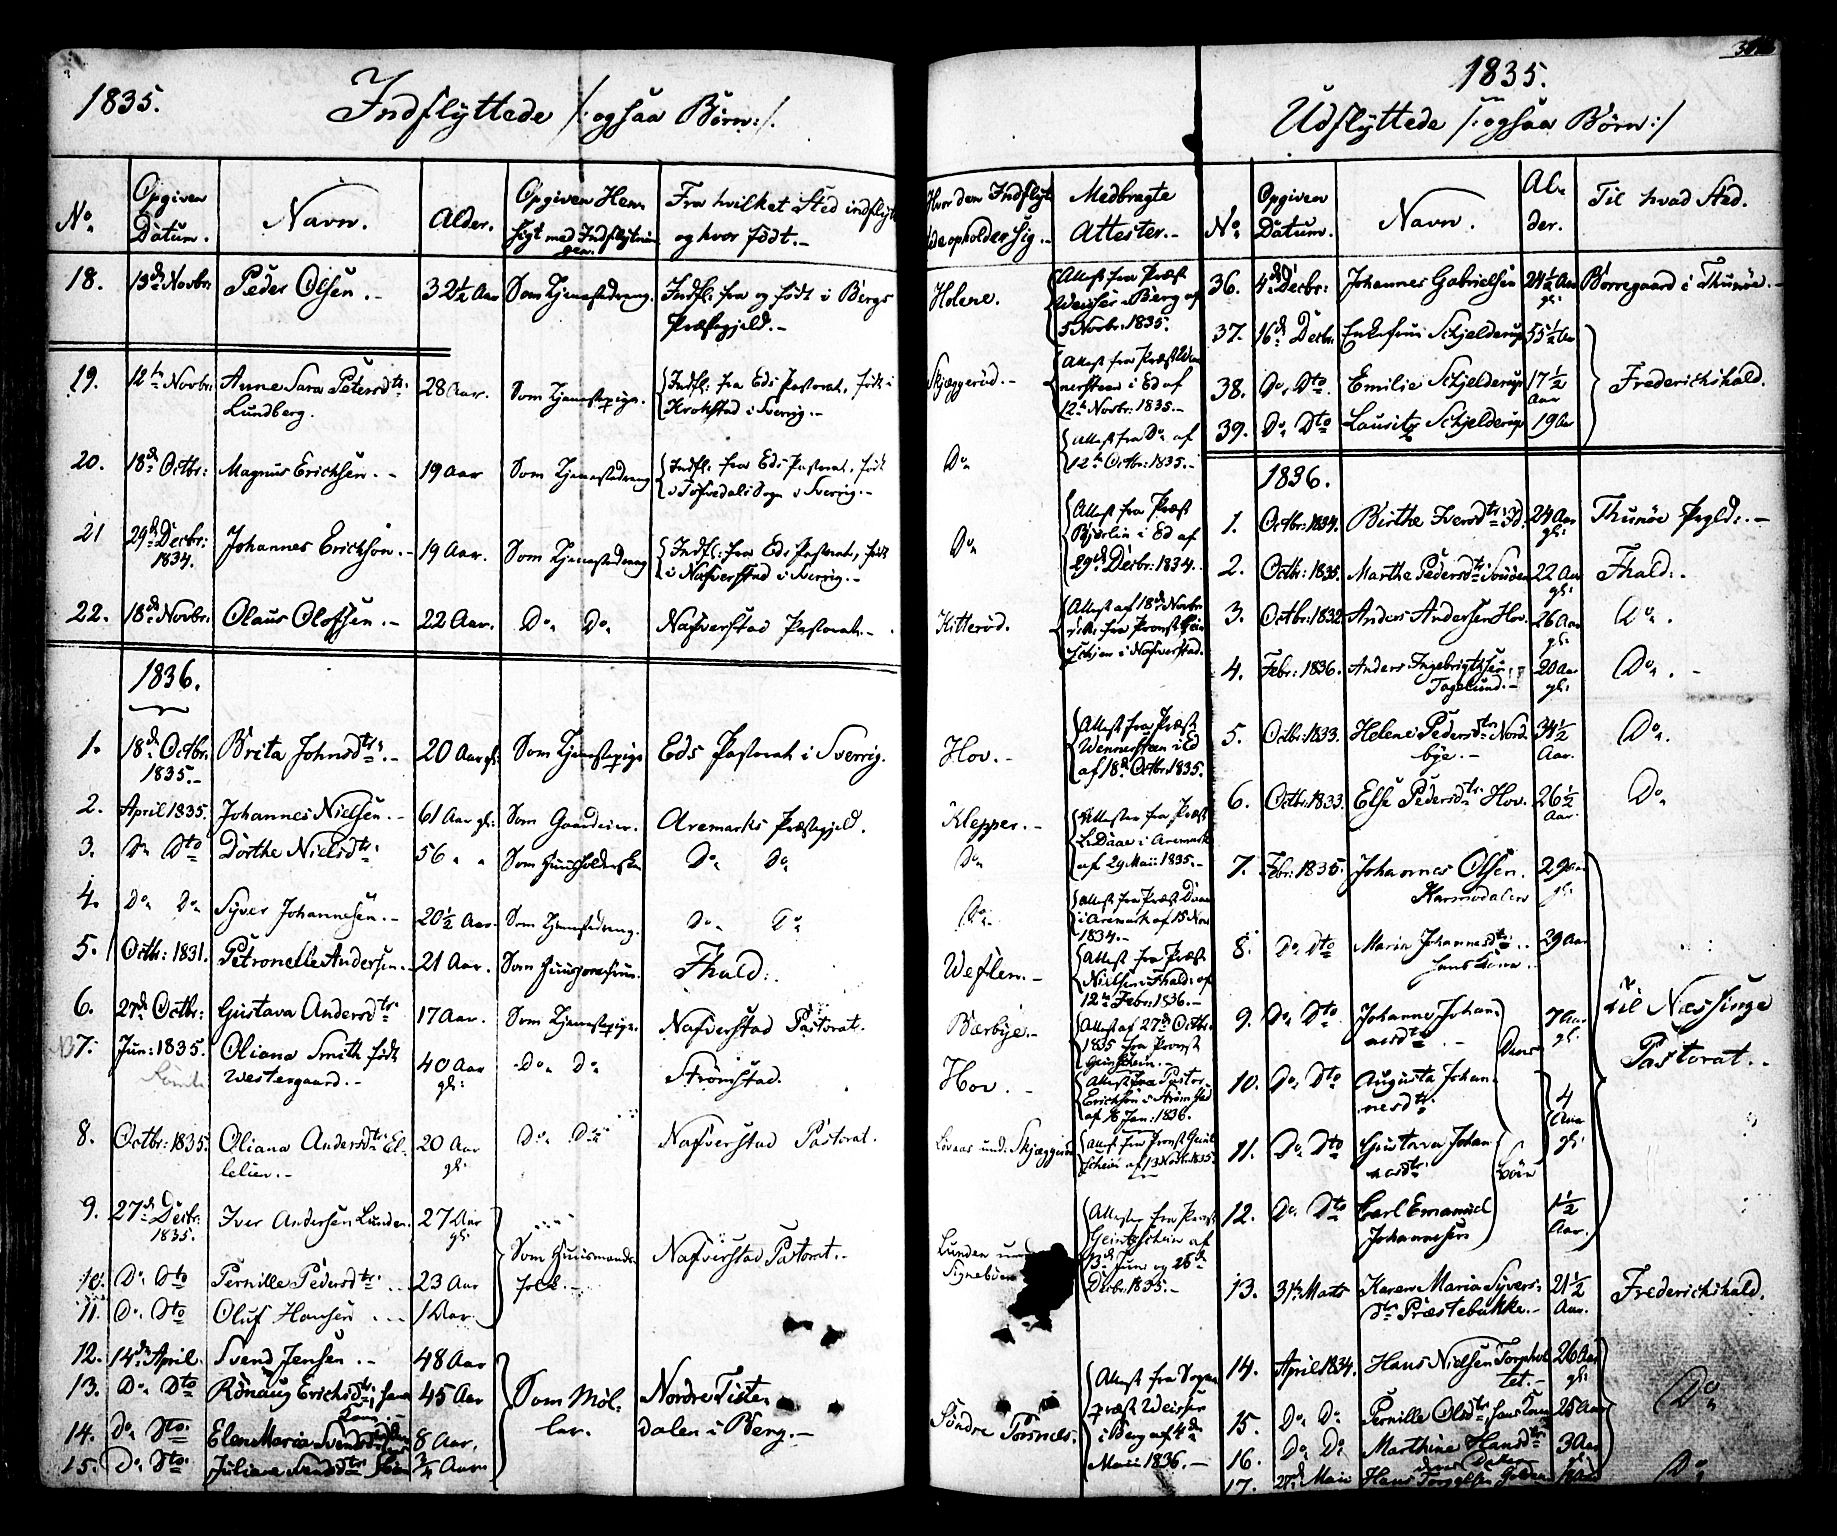 1835.
Indflyttede /: ogsaa Børn :/.
No
Opgiven Datum.
Navn.
Alder.
Opgiven Hen-
sigt med Indflytnin-
gen.
Fra hvilket Sted indflyt
og hvor født.-
Hvor den Indflyt
de opholder sig.-
Medbragte
Attester.-
18. 13de Novbr: Peder Olsen.- 32½ Aar Som Tjenestedreng. Indfl: fra og født i Bergs
Præstegjeld.-
Holene.
Attest fra Præst
Weisser i Berg af
5 Novbr: 1835.
19. 12te Novbr: Anne Sara Petersdtr:
Lundberg.
28 Aar. Som Tjenestepige. Indfl: fra Eds Pastorat, født i
Krokstad i Sverrig.-
Skjæggerød.-
12te Novbr: 1835.-
20. 18de Octbr: Magnus Ericksen.- 19 Aar Som Tjenestedreng Indfl: fra Eds Pastorat, født
i Sverrig.-
Do
Attest fra Do af
12te Octbr: 1835.-
21 29de Decbr:
1834.
Johannes Erickson.- 19 Aar. Som Tjenestedreng Indfl: fra Eds Pastorat, født
i Nafverstad i Sverrig.-
Do
Attest fra Præst
i Ed af
29de Decbr: 1834.-
22. 18de Novbr: Olaus Olofsen.- 22 Aar. Do Do Nafverstad Pastorat.-
Kitterød.
Attest af 18de Novbr
i Nafverstad.
1836.
1. 18de Octbr:
1835.-
Brita Johnsdtr:- 20 Aar gl: Som Tjenestepige Eds Pastorat i Sverrig.
Hov.-
Attest fra Præst
Wennersteen i Ed
af 18de Octbr: 1835.
2. April 1835. Johannes Nielsen.- 61 Aar gl: Som Gaardeier. Aremarks Præstegjeld.
Klepper.-
Attester fra Præst
Daae i Aremark
af 29 Maii 1835.-
3. Do Dto Dorthe Nielsdtr: 56 " " Som Huusholderske Do Do
Do
4. Do Do Syver Johannesen.- 20½ Aar. Som Tjenestedreng. Do Do
Do
Attest fra Præst Daae
i Aremark af 15 Nov
1834.-
5. Octbr: 1831. Petronelle Andersen.- 21 Aar. Fhald:
Weflen.-
Attest fra Præst
Nielsen i Fhald: af
12te Febr: 1836.-
6. 27de Octbr: Gustava Andersdtr: 17 Aar. Som Tjenestepige. Nafverstad Pastorat.
Bærbye.-
Attest af 27de Octbr:
1835 fra Provst
7. Jun: 1835. Oliana Smith født
Westergaard.-
40 Aar
gl:
Do Do Strömstad.
Hov.
Attest fra Pastor
Erickson i Strömstad
af 18 Jan: 1836.
8. Octbr: 1835. Oliana Andersdtr: El-
lelien.-
20 Aar
gl:
Do Do Nafverstad Pastorat.
und: Skjæggerød
9. 27de Decbr:
1835.
Iver Andersen Lunden. 27 Aar
gl:
Som Huusmands-
folk.-
Nafverstad Pastorat.-
Lunden und
Signebøen
Attester fra Provst
Geintzschein af
13de Juni og 26de
Decbr: 1835.-
10. Do Dto Pernille Pedersdtr:.. 23 Aar
11. Do Dto Oluf Hansen 1 Aar.
12. 14de April. Svend Jensen.- 48 Aar
Som Møl-
ler.
Nordre Tiste-
dalen i Berg.-
Søndre Torsnæs.
Attest fra Sogne
præst Weisser
i Berg af 4de
Maii 1836.-
13. Do Dto Rønaug Ericksdtr: hans
Kone.-
45 Aar
14. Do Dto. Elen Maria Svendsdtr: 8 Aar.
15. Do Dto. Juliane Svendsdtr: ¾ Aar.
1835.
Udflyttede /: ogsaa Børn :/
No
Opgiven
Datum.
Navn.
Al-
der.
Til hvad Sted.
36. 4de Decbr: Johannes Gabrielsen 24½ Aar
gl:
Borregaard i Thunøe.-
37. 16de Decbr: Enkefrue Schjelderup 55½ Aar
38. Do Dto Emilie Schjelderup 17½
Aar
Frederichshald.
39. Do Dto Lauritz Schjelderup 19 Aar
1836.
1. Octbr: 1834. Birthe Iversdtr: Id. 24 Aar
gl:
Thunøe Prgld:.-
2. Octbr: 1835. Marthe Pedersdtr: 22 Aar
gl:
Fhald:.
3. Octbr: 1832 Anders Andersen Hov. 26 Aar
gl:
Do.
4. Febr: 1836. Anders Ingebrigtsen
20 Aar
gl:
Do.-
5. Octbr: 1833. Helene Pedersdtr: Nord-
bye.-
34½
Aar.
Do.
6. Octbr: 1833. Else Pedersdtr: Hov. 26½
Aar.
Do
7. Febr: 1835. Johannes Olsen.
29 Aar
gl:
8. Do Dto Maria Johannesdtr:..
hans Kone.
39 Aar
9. Do Dto Johanne Johan-
nesdtr:.-
7 Aar
gl:
Til Næssinge
Pastorat.-
Deres
Børn
10. Do Dto Augusta Johan-
nesdtr:
4
Aar
gl:
11. Do Dto Gustava Johan-
nesdtr:
12. Do Dto Carl Emanuel
Johannesen
1½
Aar.
13. 31te Marts Karen Maria Syvers-
dtr: Præstebakke.-
21½
Aar.
Frederichshald.
14. April 1834. Hans Nielsen Torphol-
tet.-
26 Aar
gl:
Do
15. Do Do Pernille Olsdtr: hans Kone 25 Aar
16. Do Do Marthine Hansdtr:
3 Aar
17. 27de Maii Hans
Do